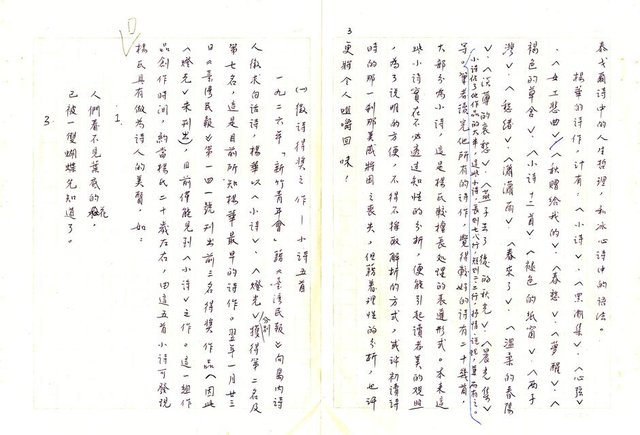 3
泰戈爾詩中的人生哲理，和冰心詩中的語法。
楊華的詩作，計有：〈小詩〉、〈黑潮集〉、〈心弦〉
、〈女工悲曲〉、〈秋贈給我的〉、〈春愁〉、〈夢醒〉、〈
褐色的草舍〉、〈小詩十二首〉、〈褪色的紙窗〉、〈西子
灣〉、〈愁緒〉、〈瀟瀟雨〉、〈春來了〉、〈溫柔的春陽
〉、〈淡華的哀愁〉、〈燕子去了後的秋光〉、〈晨光集〉
等。筆者讀完他所有的詩作，覺得較好的詩有二十幾首，
大部分為小詩，這是楊氏較擅長處理的表達形式。本來這
些小詩實在不必透過知性的分析，便能引起讀者美的觀照
，為了說明的方便，不得不採取解析的方式，或許初讀詩
時的那一剎那美感將因之喪失，但藉著理性的分析，也許
更將令人咀嚼回味！
㈠徵詩得獎之作—小詩五首
一九二六年，「新竹青年會」藉《臺灣民報》向島內詩
人徵求白話詩，楊華以〈小詩〉、〈燈光〉分別獲得第二名及
第七名，這是目前所知楊華最早的詩作。翌年一月廿三
日《臺灣民報》第一四一號刊出前三名得獎作品（因此
〈燈光〉未刊出），目前僅能見到〈小詩〉之作。這一組作
品創作時間，約當楊氏二十歲左右，由這五首小詩可發現
楊氏具有做為詩人的美質，如：
1.
人們看不見葉底的花，
已被一雙蝴蝶先知道了。
3.